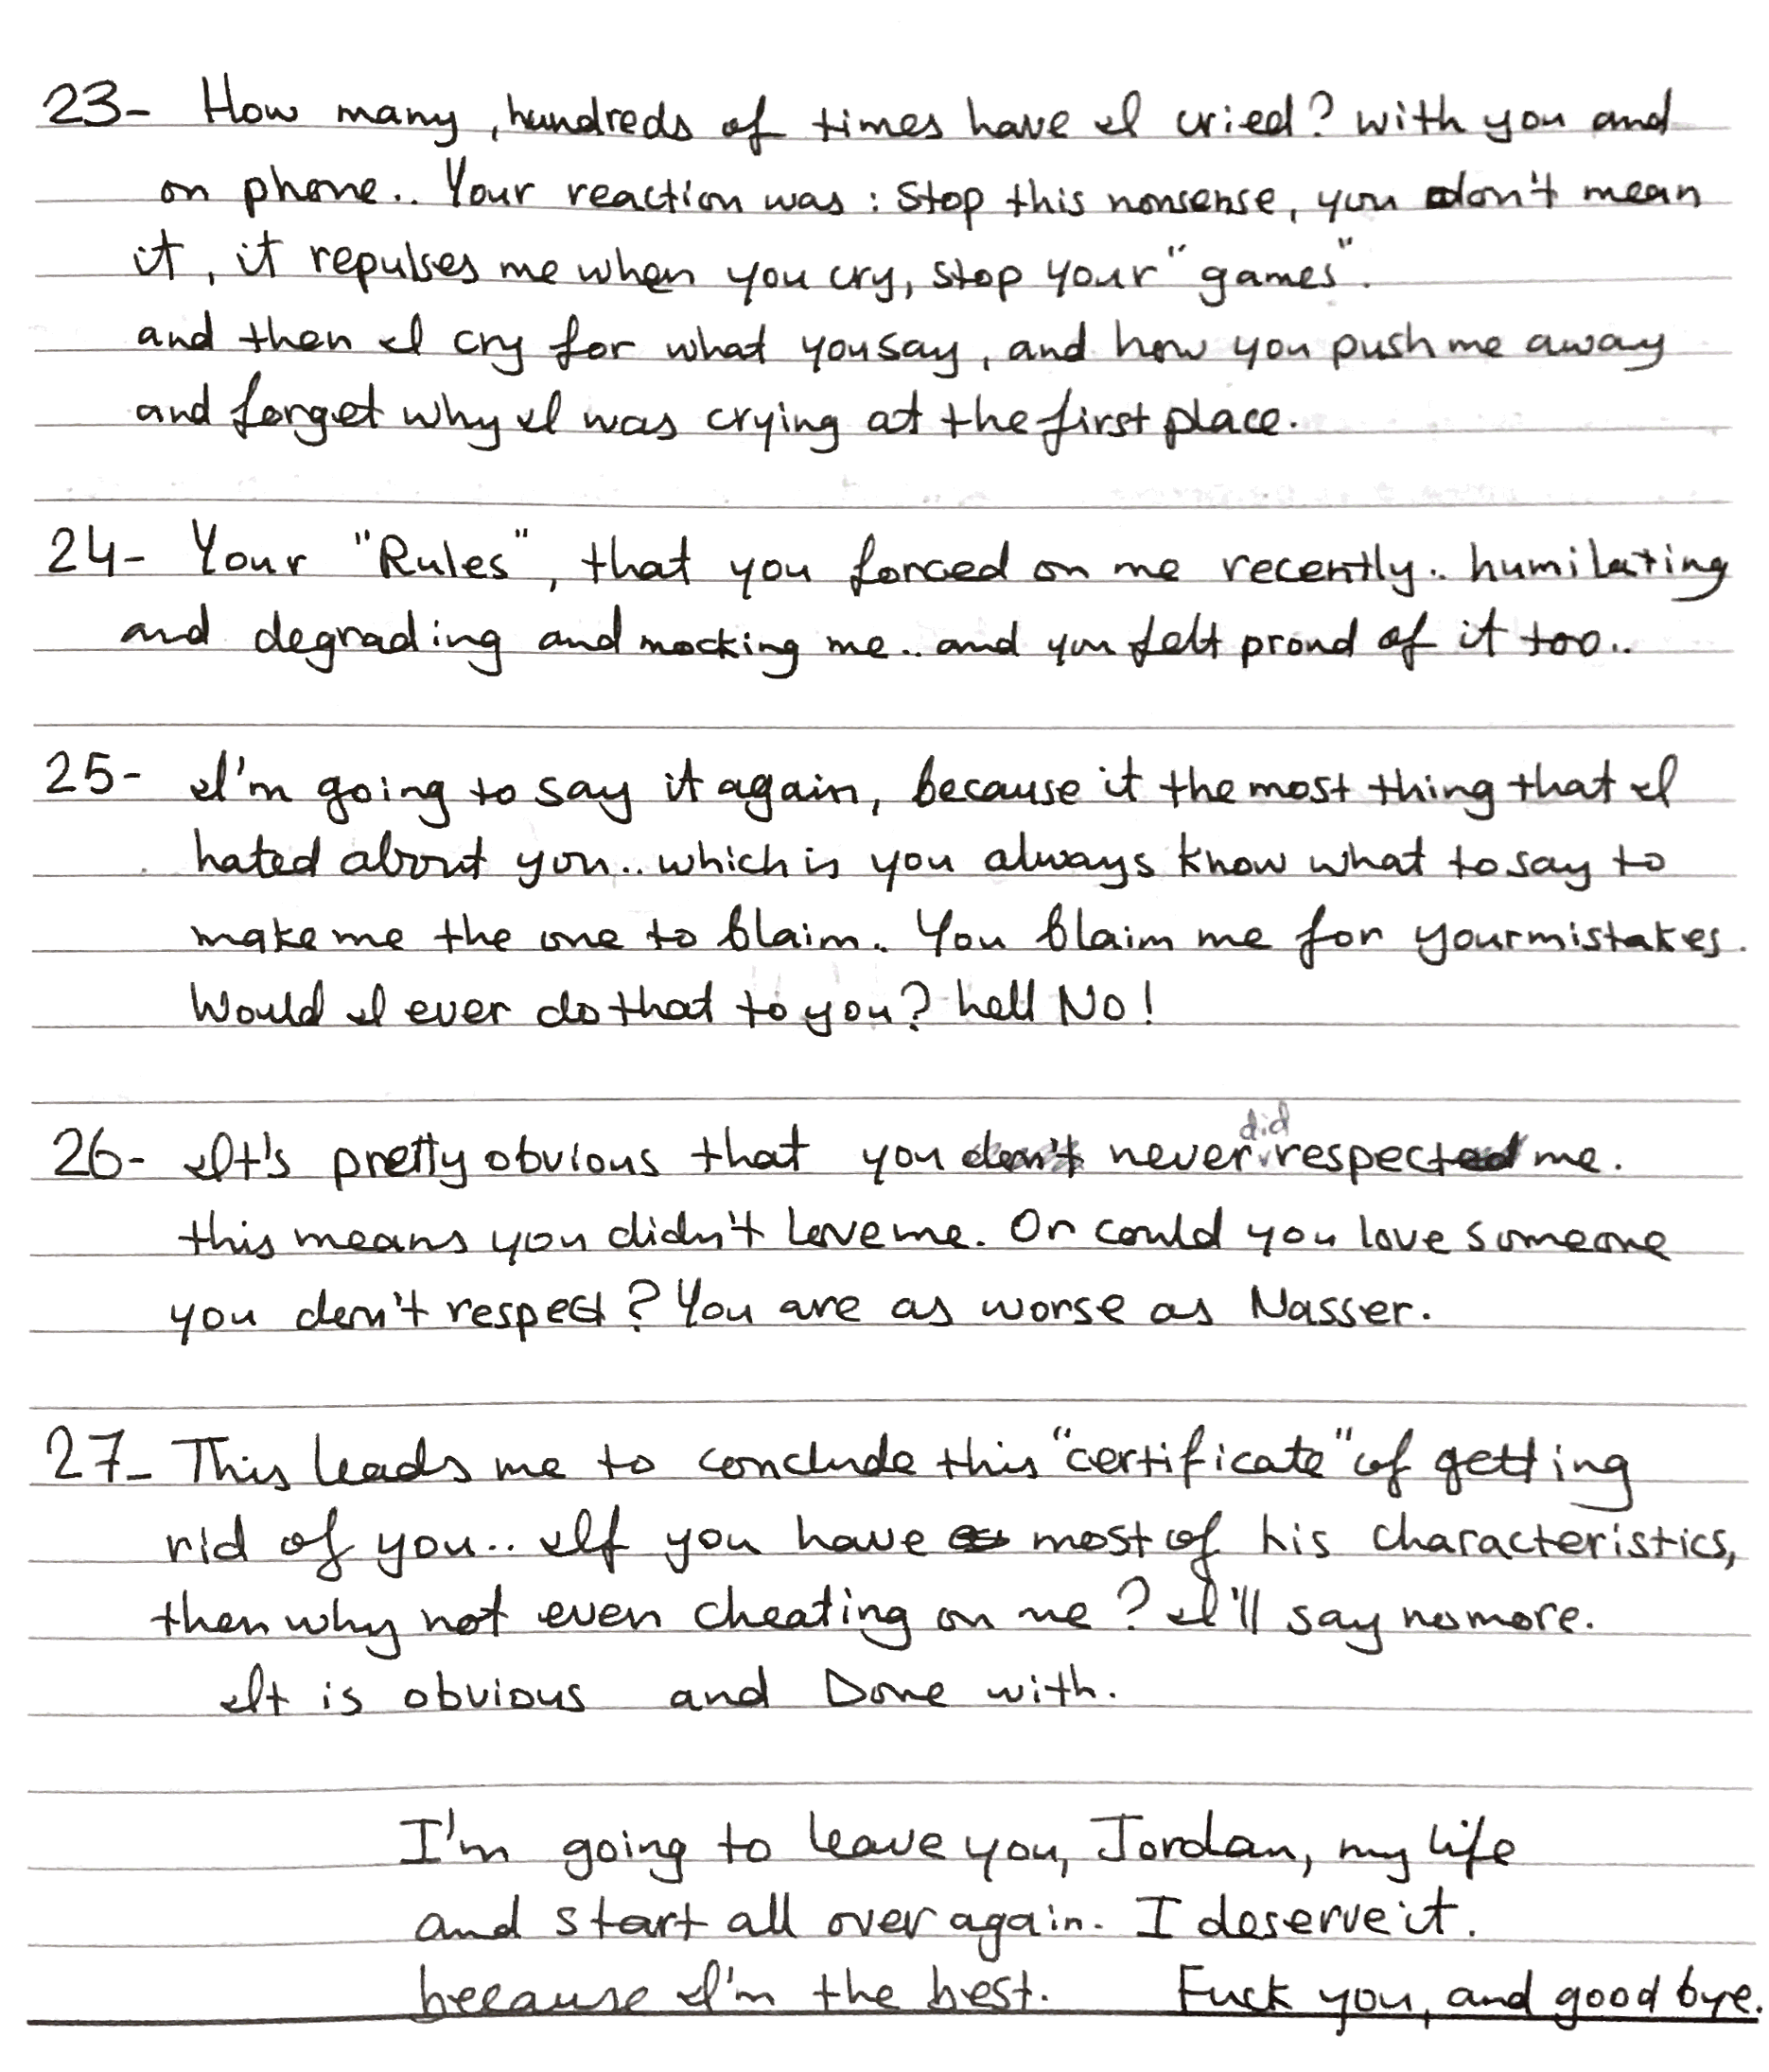 23- How many, hundreds of times have I cried? with you and
on phone.. Your reaction was: Stop this nonsense, you don't mean
it, it repulses me when you cry, stop your "games".
and then I cry for what you say, and how you push me away
and forget why I was crying at the first place.
24- Your "Rules", that you forced on me recently.. humilating
and degrading and mocking me.. and you felt proud of it too..
25- I'm going to say it again, because it the most thing that I
hated about you.. which is you always know what to say to
make me the one to blaim. You blaim me for your mistakes.
Would I ever do that to you? hell No!
26- It's pretty obvious that you don't never did respected me.
this means you didn't love me. Or could you love someone
you don't respect? You are as worse as Nasser.
27- This leads me to conclude this "certificate" of getting
rid of you.. If you have most of his characteristics,
then why not even cheating on me? I'll say no more.
It is obvious and Done with.
I'm going to leave you, Jordan, my life
and start all over again. I deserve it.
because I'm the best. Fuck you, and good bye.